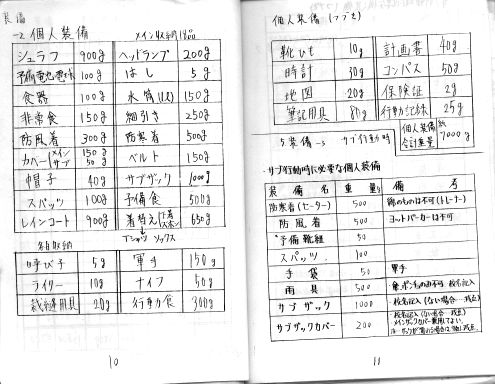 装備
-2 個人装備 メイン収納18品
シュラフ 900g ヘッドランプ 200g
予備電池電球 100g はし 5g
食器 100g 水筒(1ℓ) 150g
非常食 150g 細引き 250g
防風着 300g 防寒着 500g
カバー(メイン 150g サブ 50g ベルト 150g
帽子 40g サブザック 1000g
スパッツ 100g 予備食 500g
レインコート 900g 着替え(下着 ズボン 650g
Tシャツ ソックス
各自収納
呼び子 5g 軍手 150g
ライター 10g ナイフ 50g
裁縫用具 20g 行動食 300g
10
個人装備 (フタを)
靴ひも 10g 計画書 40g
時計 30g コンパス 50g
地図 20g 保険証 2g
筆記用具 80g 行動記録 25g
個人装備 総
合計重量 7000g
5. 装備-3 サブ行動時
・サブ行動時に必要な個人装備
装備名 重量g 備考
防寒着(セーター) 500 綿のものは不可(トレーナー)
防風着 500 ヨットパーカーは不可
予備靴紐 50
スパッツ 100
手袋 50 軍手
雨具 500
サブザック 1000 ・校名記入(ない場合 減点)
サブザックカバー 200 ・校名記入(ない場合 減点)
11